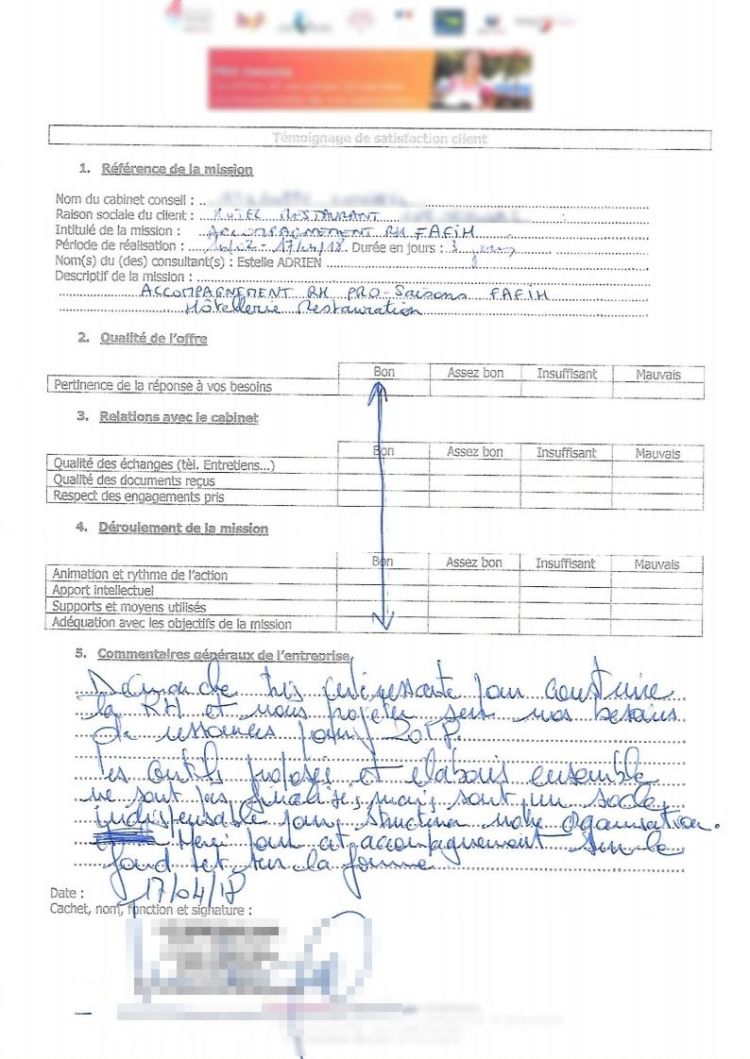 Témoignage de satisfaction client
1. Référence de la mission
Nom du cabinet conseil :
Raison sociale du client : HOTEL RESTAURANT
Intitulé de la mission : ACCOMPAGNEMENT RH FAFIH
Période de réalisation : - 17/04/18. Durée en jours : 3 jours
Nom(s) du (des) consultant(s) : Estelle ADRIEN
Descriptif de la mission :
ACCOMPAGNEMENT RH PRO-Saisons FAFIH
Hôtellerie Restauration
2. Qualité de l'offre
Bon Assez bon Insuffisant Mauvais
Pertinence de la réponse à vos besoins
3. Relations avec le cabinet
Bon Assez bon Insuffisant Mauvais
Qualité des échanges (tèl. Entretiens...)
Qualité des documents reçus
Respect des engagements pris
4. Déroulement de la mission
Bon Assez bon Insuffisant Mauvais
Animation et rythme de l'action
Apport intellectuel
Supports et moyens utilisés
Adéquation avec les objectifs de la mission
5. Commentaires généraux de l'entreprise
Démarche très intéressante pour construire
la RH et nous projeter sur nos besoins
de ressources pour 2018.
Les outils proposés et élaborés ensemble
ne sont pas finalisés, mais sont un socle
indispensable pour structurer notre organisation.
Merci pour cet accompagnement sur le
fond et sur la forme
Date : 17/04/18
Cachet, nom, fonction et signature :